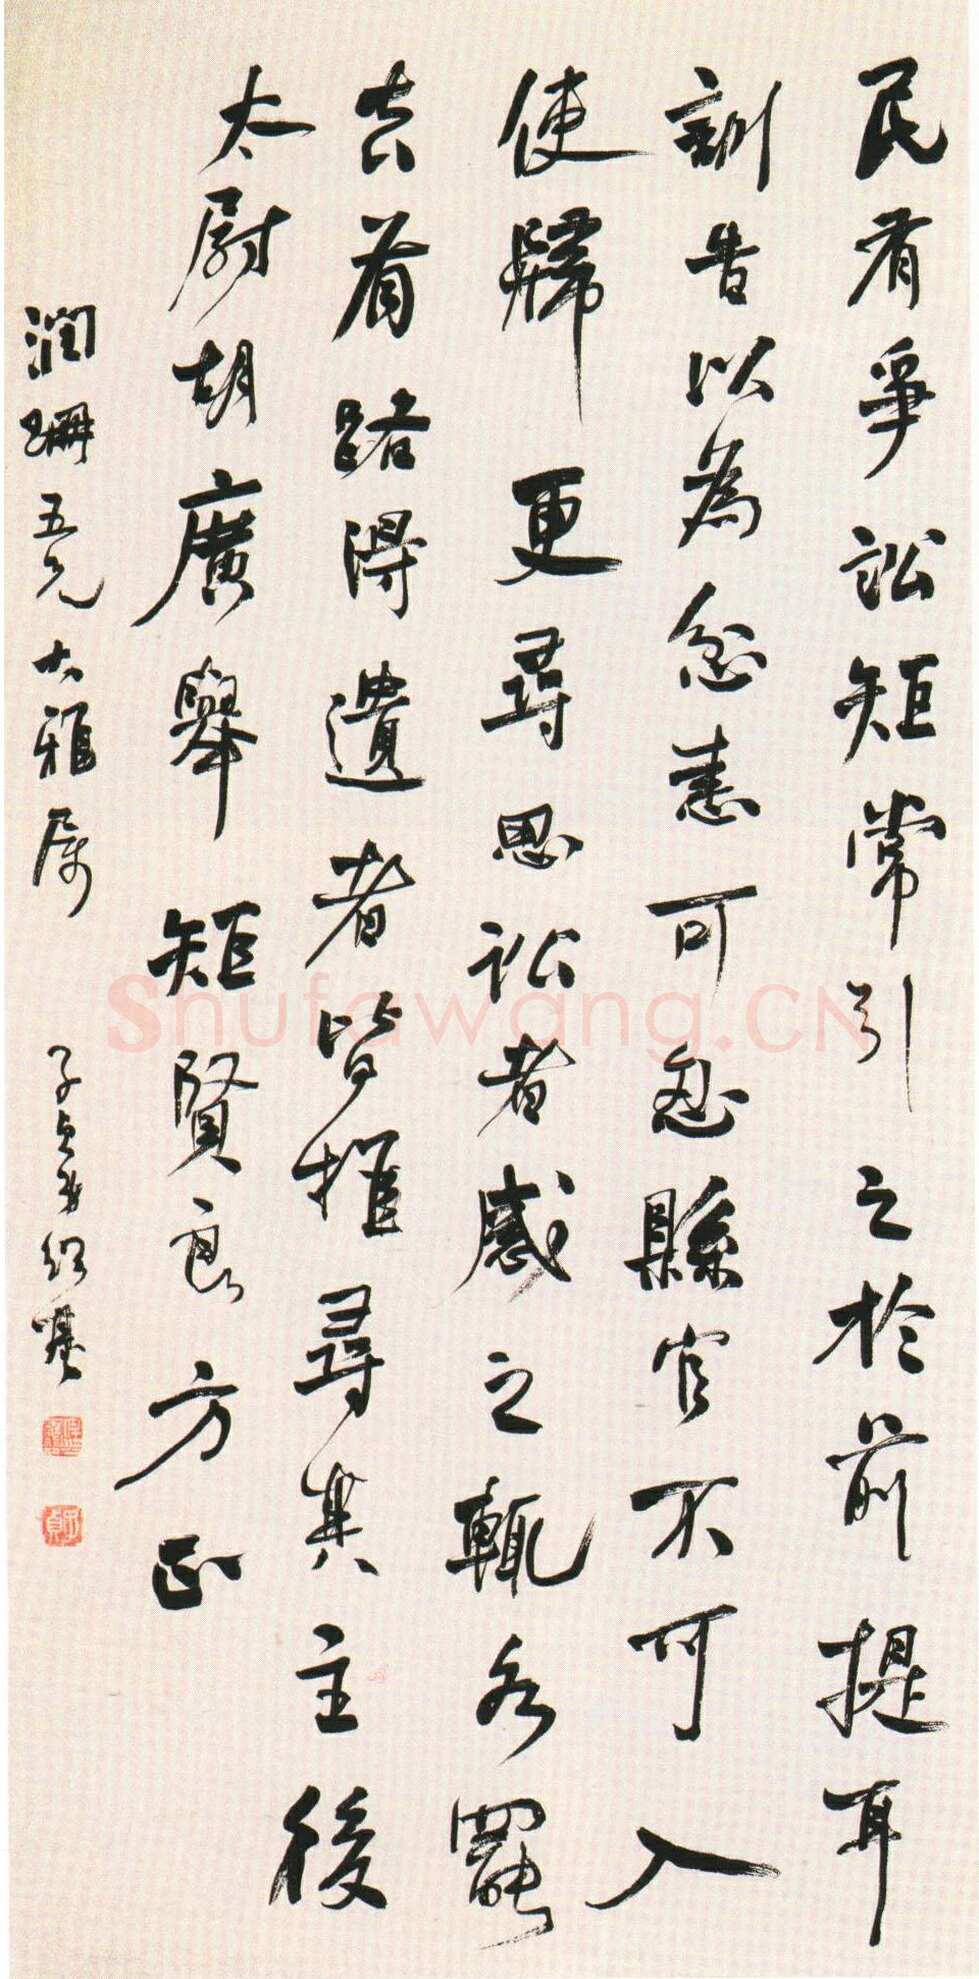 民有爭訟矩常引之於前提耳
訓告以為忿恚可忍縣官不可入
使歸更尋思訟者感之輒各罷
去有路得遺者皆推尋其主後
太尉胡廣舉矩賢良方正
潤珊五兄大雅屬
子貞弟紹基
子貞
Shufawang.CN